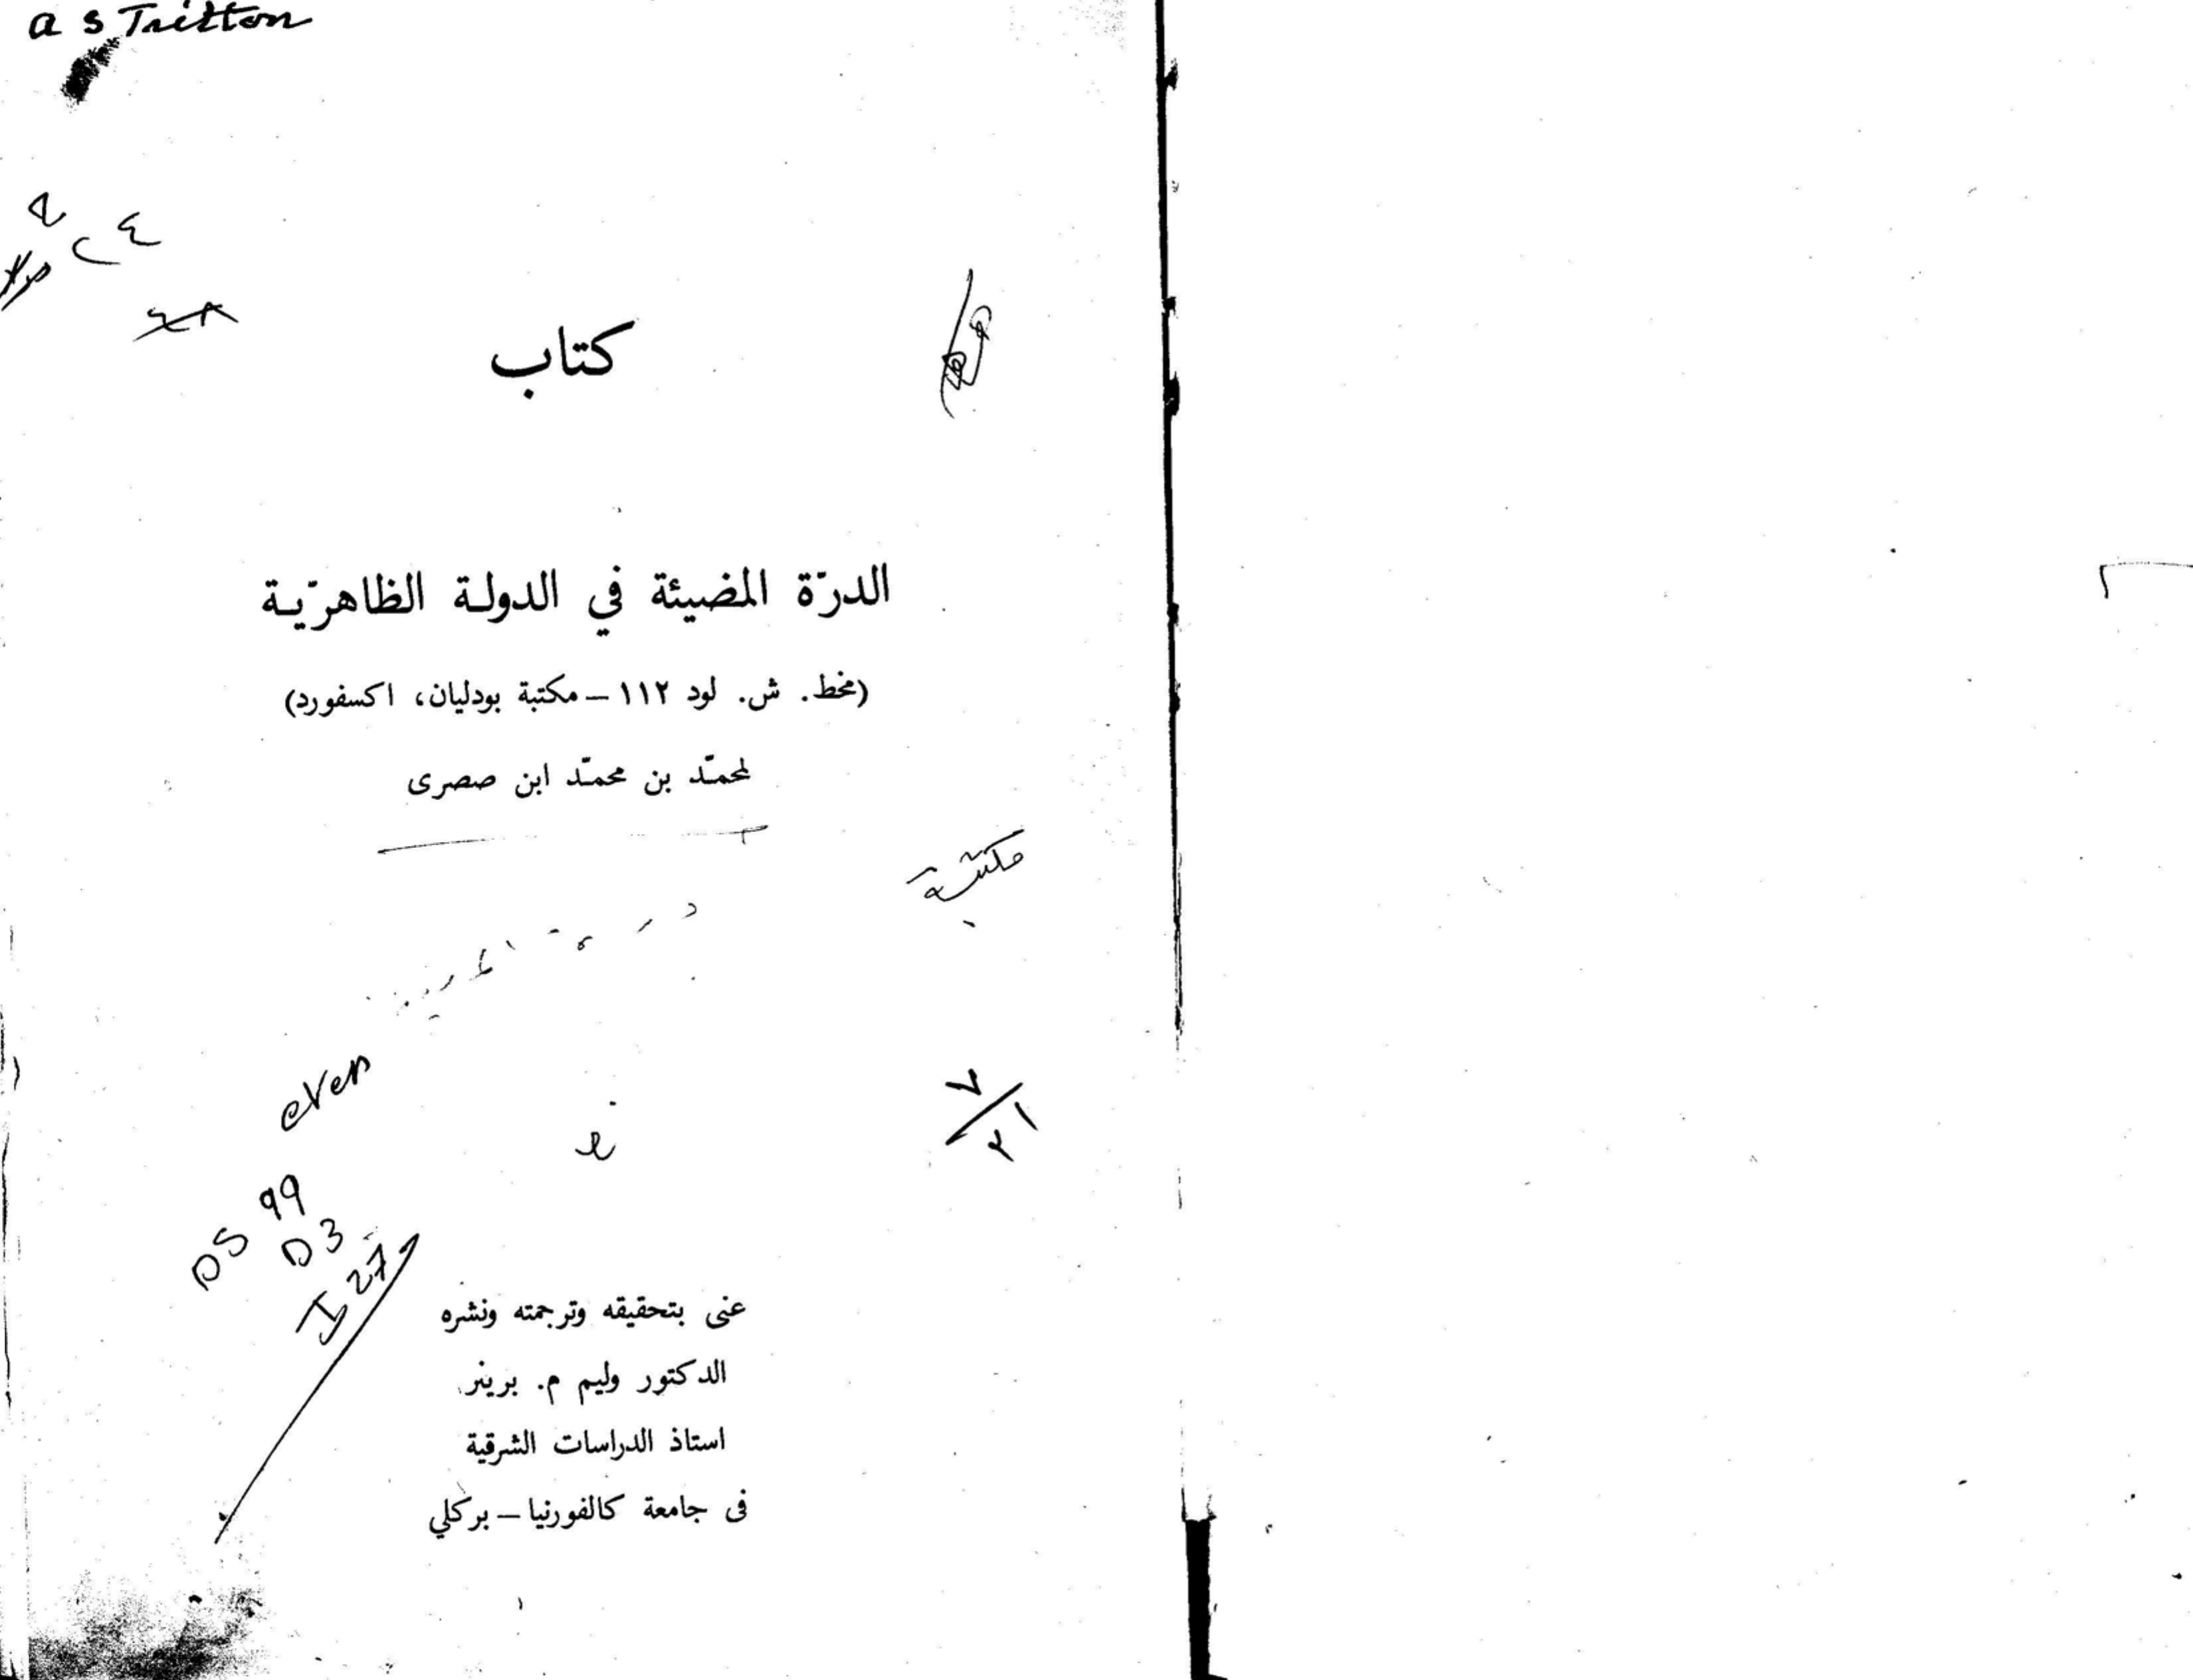 a s Tritton
كتاب
الدرّة المضيئة في الدولة الظاهرّية
(مخط. ش. لود ١١٢ – مكتبة بودليان، اكسفورد)
لمحمّد بن محمّد ابن صصرى
مكتبة
٧
٢١
DS 99
D3
I 27
عنى بتحقيقه وترجمته ونشره
الدكتور وليم م. برينر
استاذ الدراسات الشرقية
فى جامعة كالفورنيا – بركلي